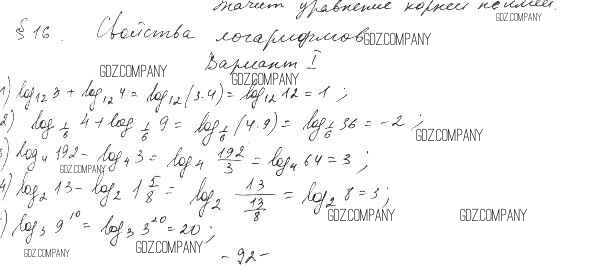 Значит уравнение корней не имеет.
GDZ.COMPANY
§ 16. Свойства логарифмов
GDZ.COMPANY
GDZ.COMPANY
Вариант I
GDZ.COMPANY
1) log₁₂ 3 + log₁₂ 4 = log₁₂ (3·4) = log₁₂ 12 = 1 ;
2) log_{1/6} 4 + log_{1/6} 9 = log_{1/6} (4·9) = log_{1/6} 36 = -2 ;
GDZ.COMPANY
) log₄ 192 - log₄ 3 = log₄ 192/3 = log₄ 64 = 3 ;
GDZ.COMPANY
4) log₂ 13 - log₂ 1 5/8 = log₂ 13/(13/8) = log₂ 8 = 3 ;
GDZ.COMPANY
GDZ.COMPANY
) log₃ 9¹⁰ = log₃ 3²⁰ = 20 ;
GDZ.COMPANY
GDZ.COMPANY
- 92 -